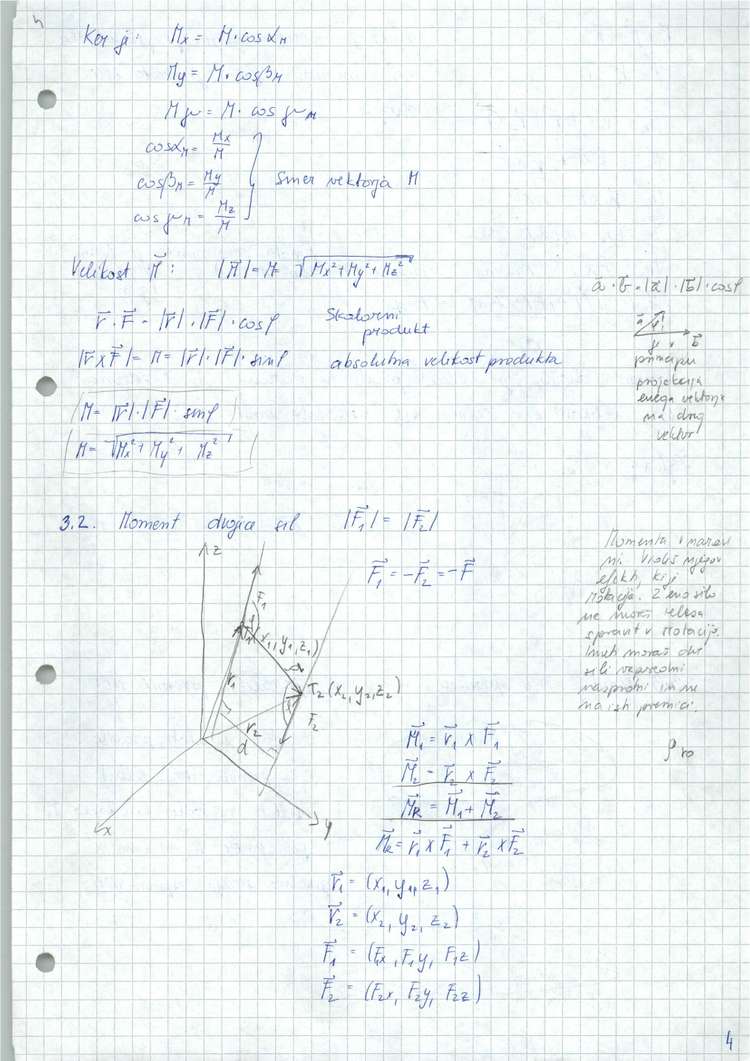 Ker je: Mx = M·cosαM
My = M·cosβM
Mγ = M·cos γM
cosαM = Mx/M
cosβM = My/M
cos γM = Mz/M
Smer vektorja M
Velikost M⃗: |M⃗| = M = √(Mx²+My²+Mz²)
a⃗ · b⃗ = |a⃗| · |b⃗| · cosφ
r⃗ · F⃗ = |r⃗| · |F⃗| · cosφ Skalarni produkt
|r⃗ × F⃗| = M = |r⃗| · |F⃗| · sinφ absolutna velikost produkta
a⃗ φ b⃗
je v
principu
projekcija
enega vektorja
na drug
vektor
M = |r⃗| · |F⃗| · sinφ
M = √(Mx² + My² + Mz²)
3.2. Moment dvojice sil |F⃗1| = |F⃗2|
F⃗1 = -F⃗2 = -F⃗
Momenta v naravi
ni. Vidiš njegov
efekt, ki je
rotacija. Z eno silo
ne moreš telesa
spravit v rotacijo.
Imeti moraš dve
sili vzporedni
nasprotni in ne
na isti premici.
z
F1
T1(x1, y1, z1)
r1
T2(x2, y2, z2)
r2
F2
d
x
y
M⃗1 = r⃗1 × F⃗1
M⃗2 = r⃗2 × F⃗2
M⃗R = M⃗1 + M⃗2
M⃗R = r⃗1 × F⃗1 + r⃗2 × F⃗2
r⃗1 = (x1, y1, z1)
r⃗2 = (x2, y2, z2)
F⃗1 = (F1x, F1y, F1z)
F⃗2 = (F2x, F2y, F2z)
4